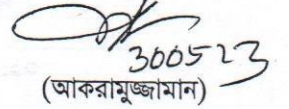 300523
(আকরামুজ্জামান)